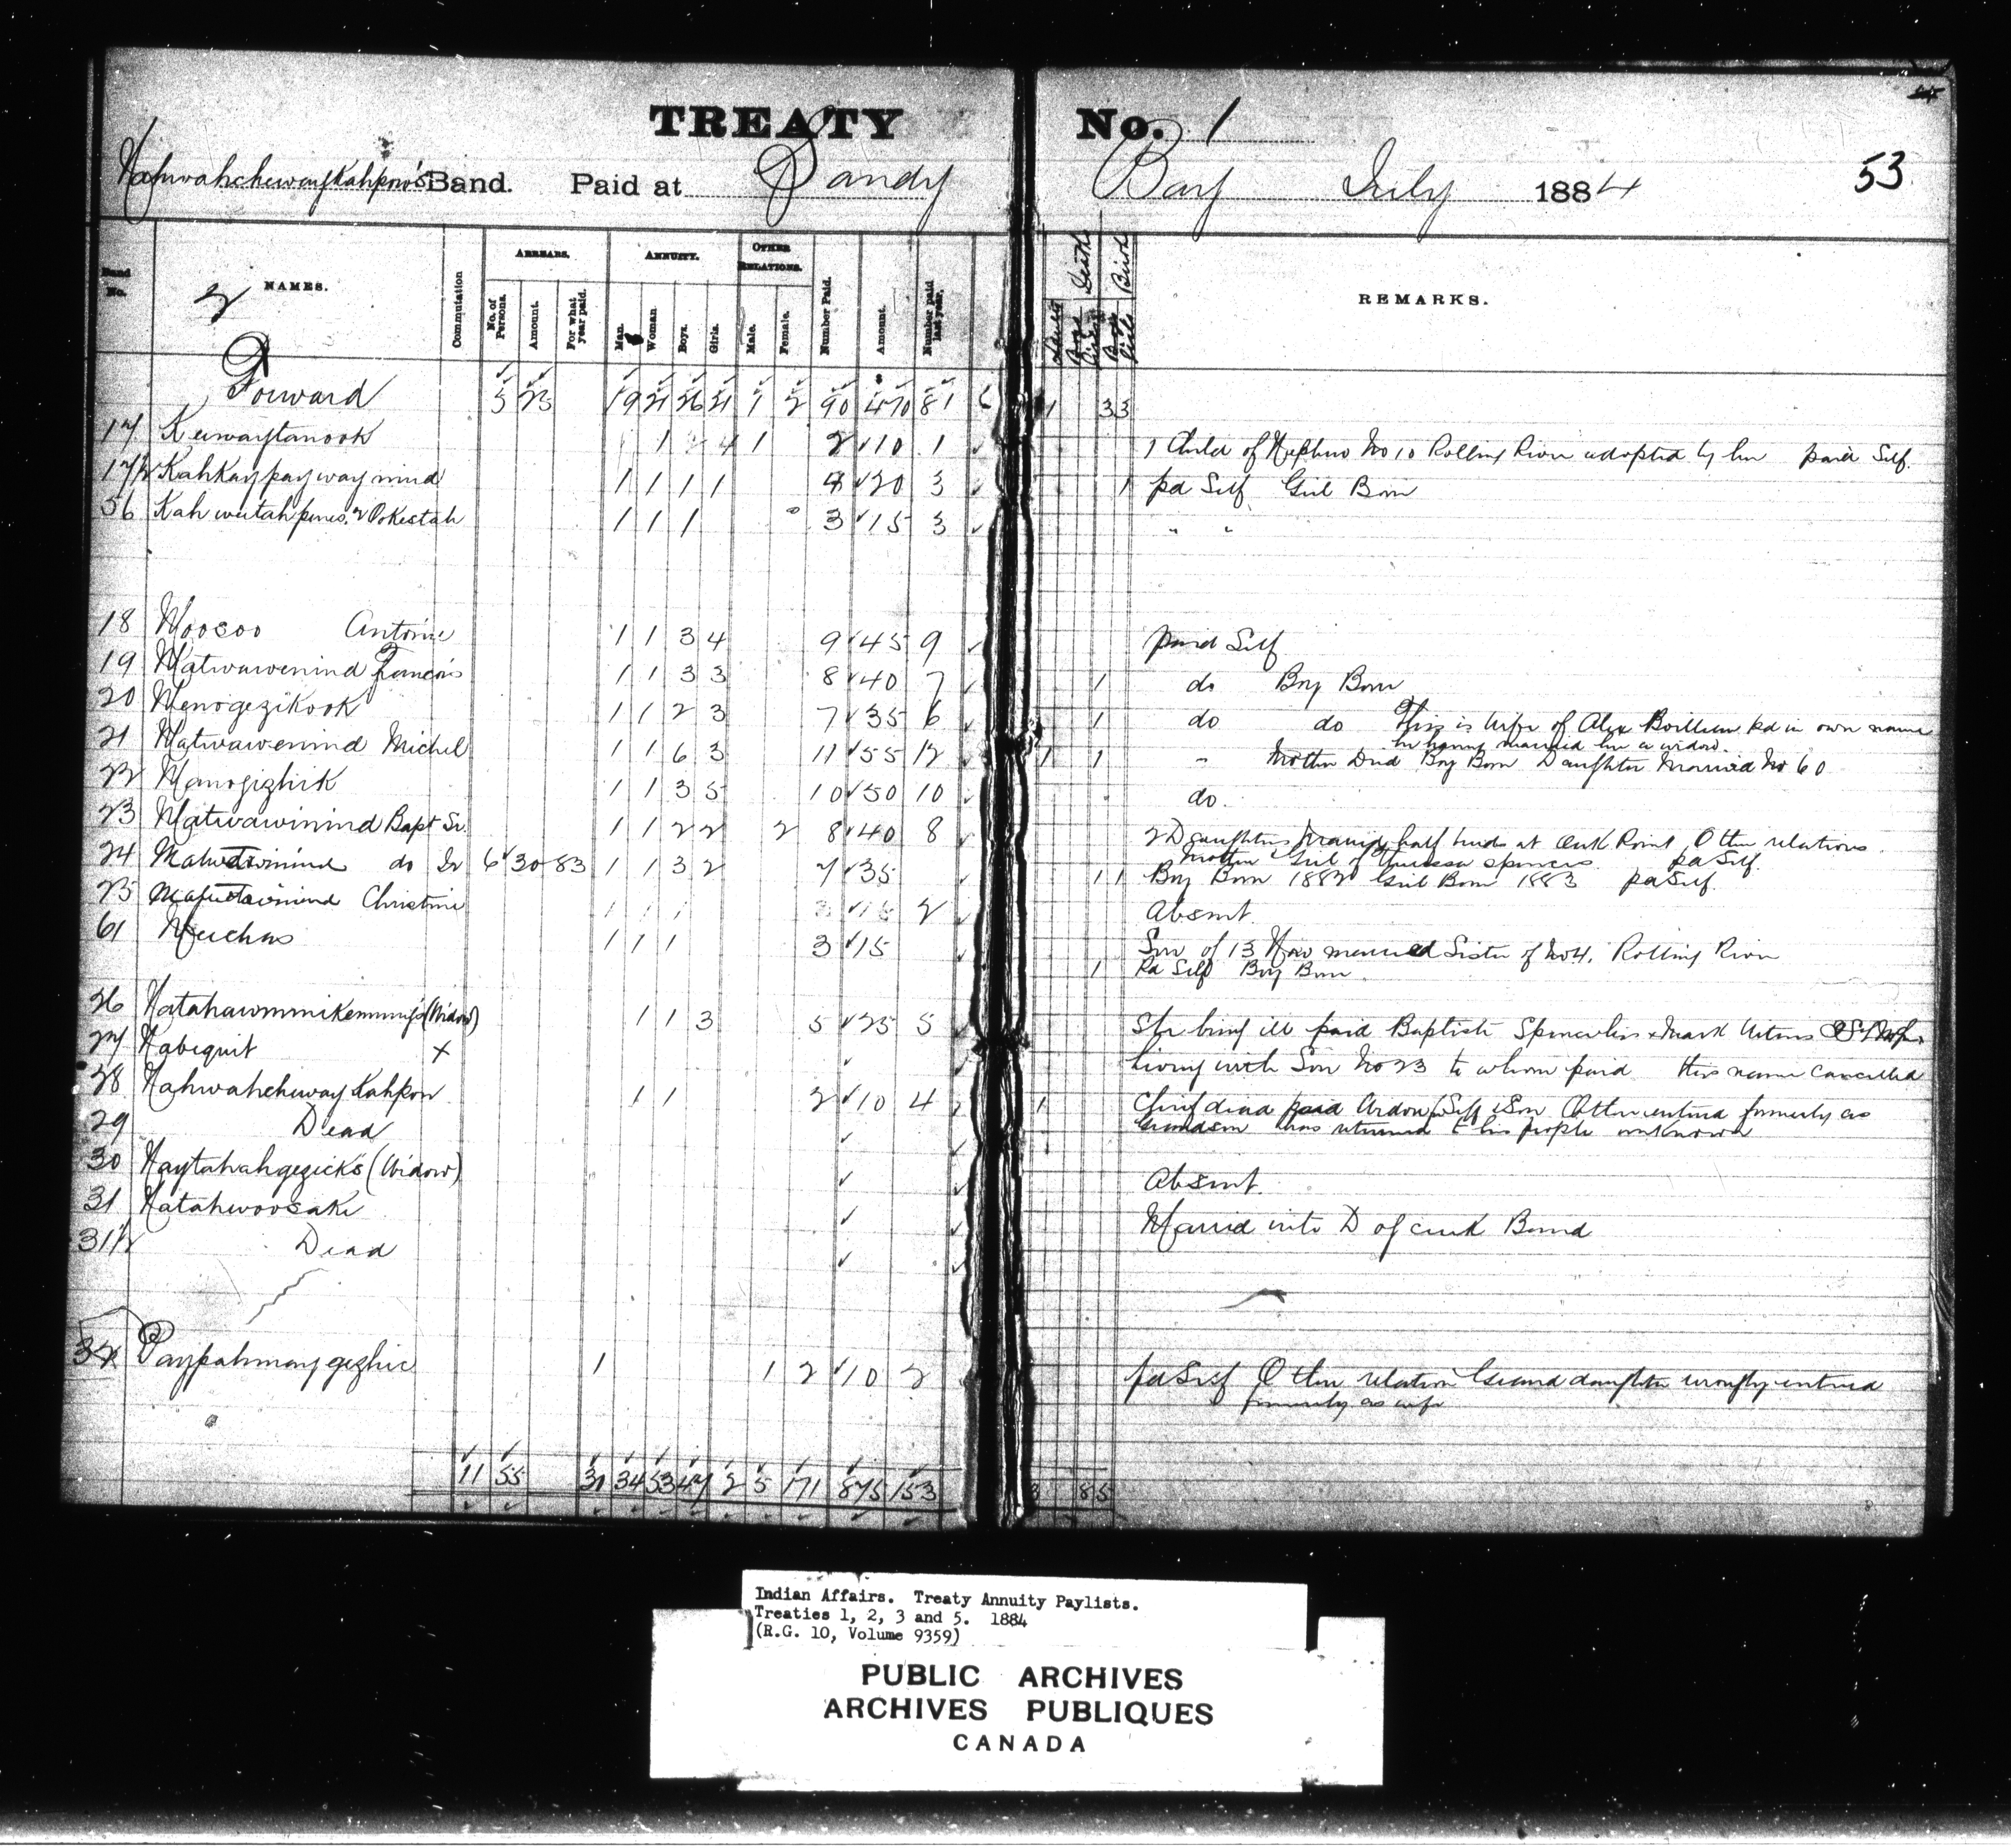 TREATY No. 1
Nahwahchewaykahpow's Band. Paid at Dandy Bay July 1884 53
Band No. NAMES. Commutation ARREARS. No. of Persons. Amount. For what year paid. ANNUITY. Man. Woman. Boys. Girls. OTHER RELATIONS. Male. Female. Number Paid. Amount. Number paid last year. Deaths Birth REMARKS.
2
Forward 5 25 19 21 26 21 1 2 90 470 81 6 1 3 3
17 Keewaytanook 1 1 2 10 1 1 Child of Nephew No 10 Rolling River adopted by her paid Self.
17½ Kahkaypaywaymind 1 1 1 1 4 20 3 1 pd Self Girl Born
56 Kah weetah pines. 2 Pokestah 1 1 1 3 15 3 " "
18 Moosoo Antoine 1 1 3 4 9 45 9 paid Self
19 Matwawenind Francois 1 1 3 3 8 40 7 1 do Boy Born
20 Menogezikook 1 1 2 3 7 35 6 1 do do This is Wife of Alex pd in own name
he having married her a widow.
21 Matwawenind Michel 1 1 6 3 11 55 12 1 1 " Mother Dead Boy Born Daughter Married No 60
22 Manogizhik 1 1 3 5 10 50 10 do.
23 Matwawinind Bapt Sr. 1 1 2 2 2 8 40 8 2 Daughters half breeds at Oak Point Other relations
Mother & Girl of pd Self.
24 Matwawinind do Jr 6 30 83 1 1 3 2 7 35 1 1 Boy Born 1882 Girl Born 1883 pd Self.
25 Matwawinind Christine 1 1 1 3 15 2 Absent.
61 1 1 1 3 15 Son of 13 Now married Sister of No 4, Rolling River
1 Pd Self Boy Born
26 (Widow) 1 1 3 5 25 5 She being ill paid Baptiste Mark Witness
27 Nabequit x living with Son No 23 to whom paid this name cancelled
28 Nahwahchewaykahpow 1 1 2 10 4 1 Chief dead paid Widow Self & Son Other entered formerly as
Grandson has returned to his people unknown
29 Dead
30 Naytahahgezick's (Widow) Absent.
31 Natahwoosake Married into D of creek Band
31½ Dead
32 Paypahmaygezhic 1 1 2 10 2 pd Self Other relation Grand daughter wrongly entered
formerly as wife
11 55 31 34 53 47 2 5 171 875 153 3 8 5
Indian Affairs. Treaty Annuity Paylists.
Treaties 1, 2, 3 and 5. 1884
(R.G. 10, Volume 9359)
PUBLIC ARCHIVES
ARCHIVES PUBLIQUES
CANADA